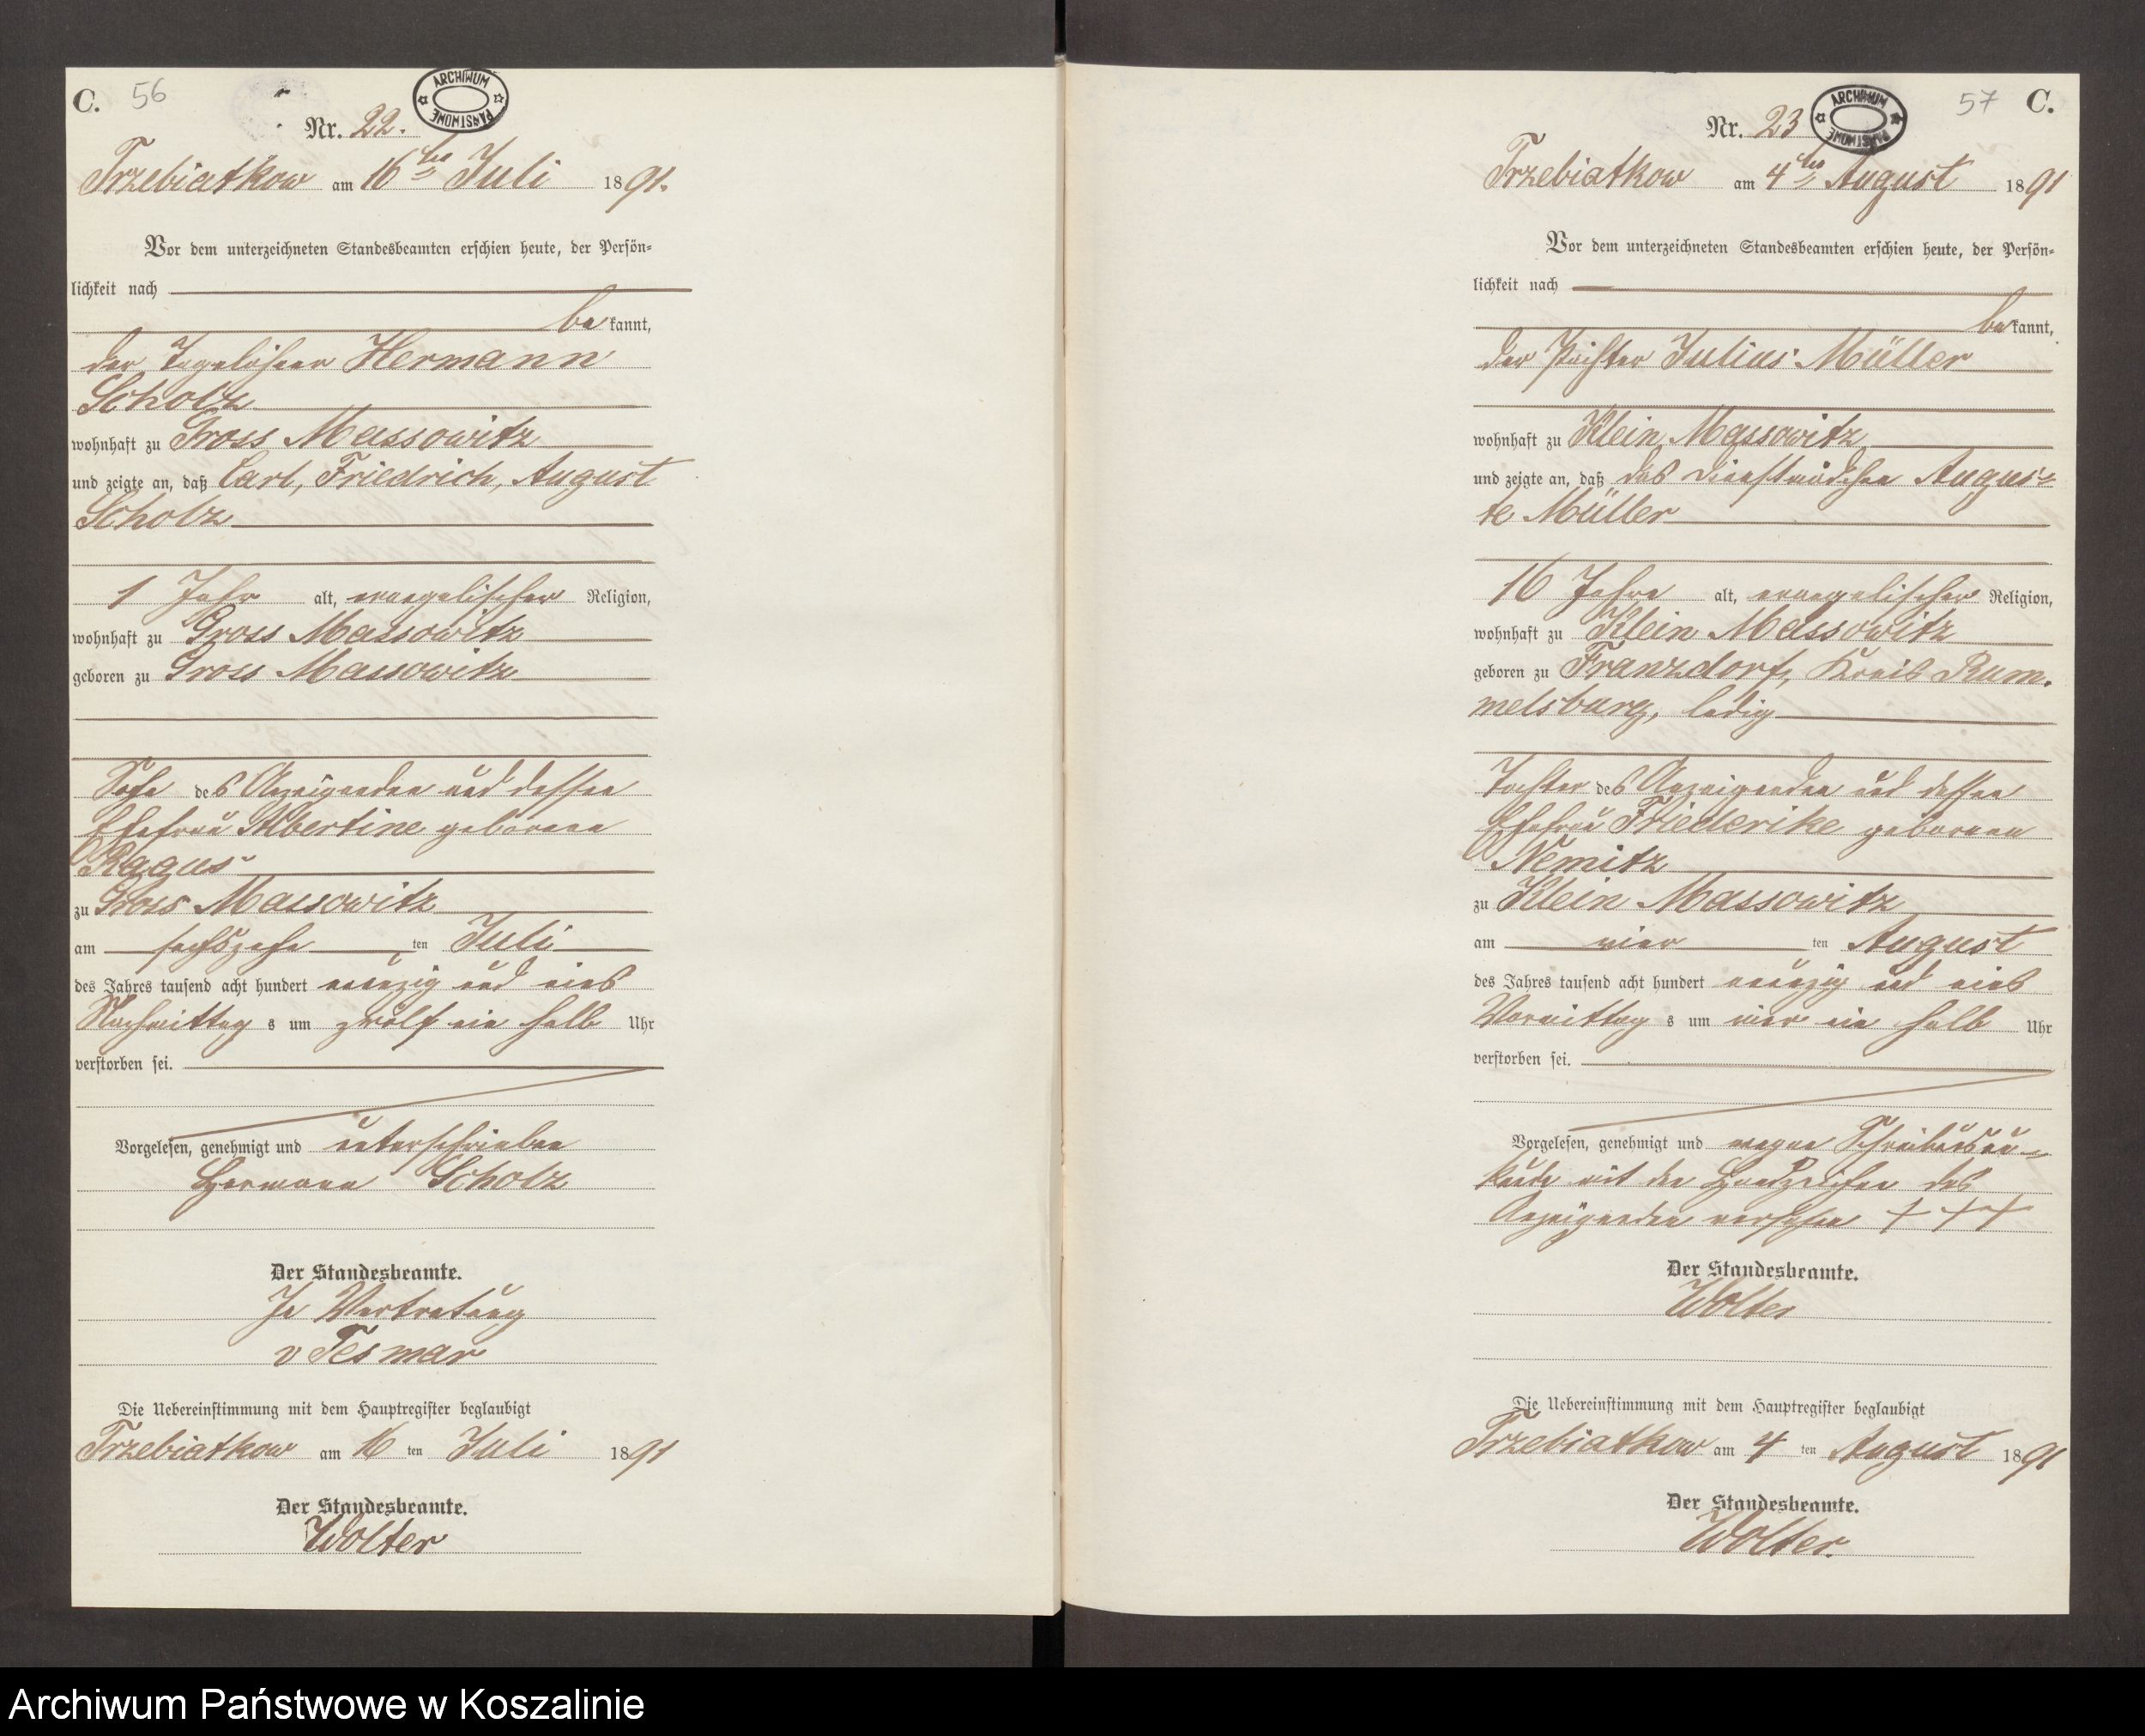 C. 56
ARCHIWUM PAŃSTWOWE
Nr. 22.
Trzebiatkow am 16ten Juli 1891.
Vor dem unterzeichneten Standesbeamten erschien heute, der Persön-
lichkeit nach
be kannt,
der Tagelöhner Hermann
Scholz
wohnhaft zu Gross Massowitz
und zeigte an, daß Carl, Friedrich, August
Scholz
1 Jahr alt, evangelischer Religion,
wohnhaft zu Gross Massowitz
geboren zu Gross Massowitz
Sohn des Anzeigenden und dessen
Ehefrau Albertine geborene
Ragus
zu Gross Massowitz
am sechszehn ten Juli
des Jahres tausend acht hundert neunzig und eins
Nachmittag s um zwölf ein halb Uhr
verstorben sei.
Vorgelesen, genehmigt und unterschrieben
Hermann Scholz
Der Standesbeamte.
In Vertretung
v Tesmar
Die Uebereinstimmung mit dem Hauptregister beglaubigt
Trzebiatkow am 16 ten Juli 1891
Der Standesbeamte.
Wolter
57 C.
ARCHIWUM PAŃSTWOWE
Nr. 23
Trzebiatkow am 4ten August 1891
Vor dem unterzeichneten Standesbeamten erschien heute, der Persön-
lichkeit nach
be kannt,
der Pächter Julius Müller
wohnhaft zu Klein Massowitz
und zeigte an, daß das Dienstmädchen Augus-
te Müller
16 Jahre alt, evangelischer Religion,
wohnhaft zu Klein Massowitz
geboren zu Franzdorf, Kreis Rum-
melsburg, ledig
Tochter des Anzeigenden und dessen
Ehefrau Friederike geborenen
Nemitz
zu Klein Massowitz
am vier ten August
des Jahres tausend acht hundert neunzig und eins
Vormittag s um vier ein halb Uhr
verstorben sei.
Vorgelesen, genehmigt und wegen Schreibensun-
kunde mit den Handzeichen des
Anzeigenden versehen + + +
Der Standesbeamte.
Wolter
Die Uebereinstimmung mit dem Hauptregister beglaubigt
Trzebiatkow am 4 ten August 1891
Der Standesbeamte.
Wolter.
Archiwum Państwowe w Koszalinie